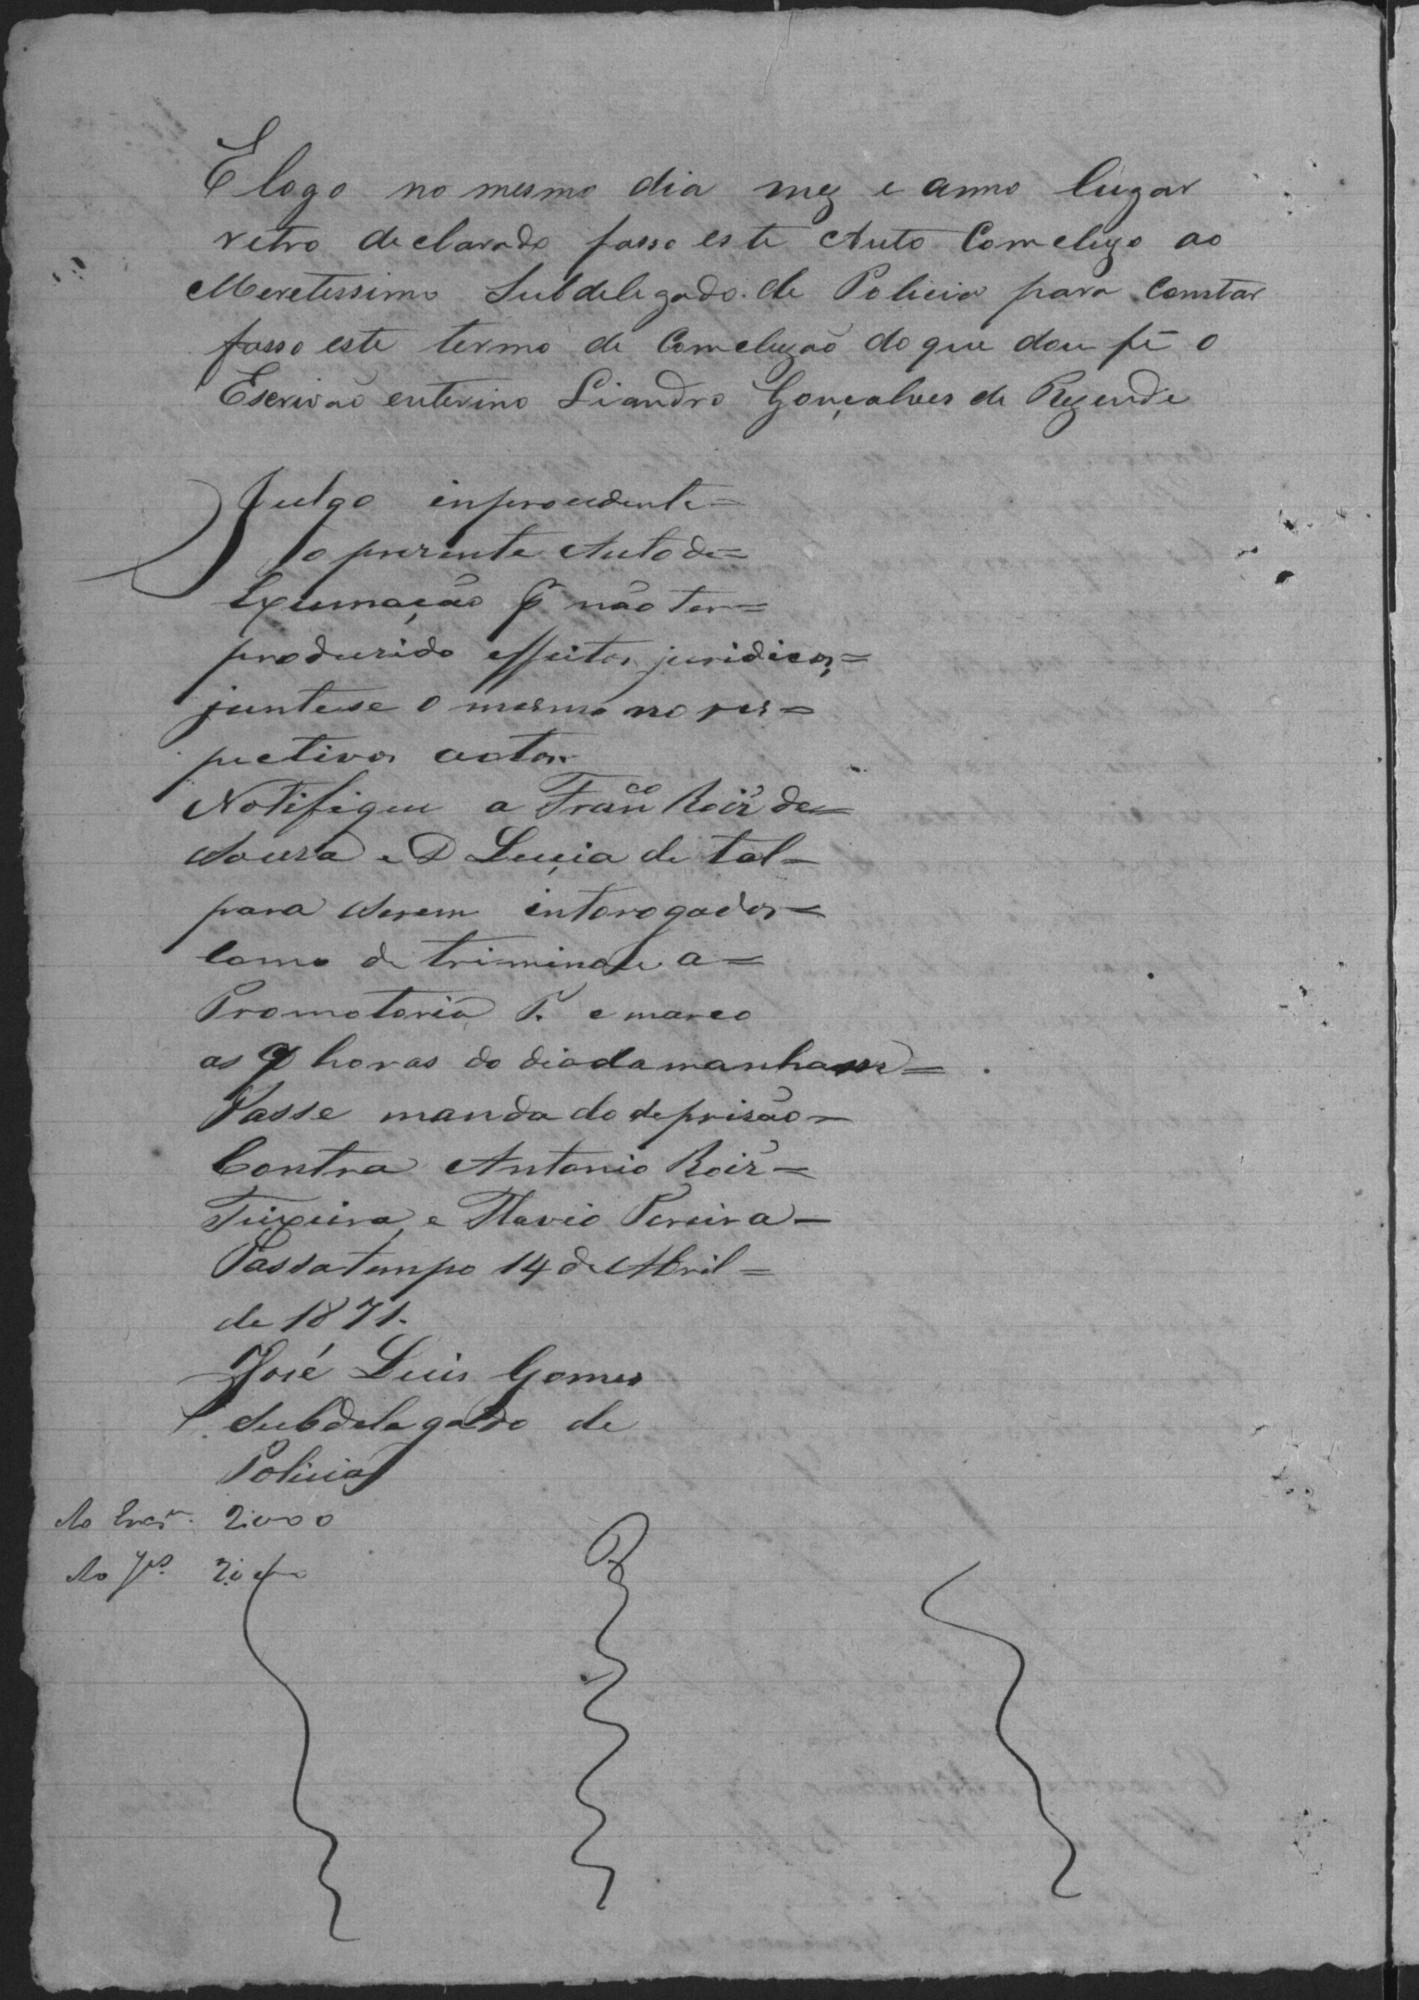 E logo no mesmo dia mez e anno lugar
retro declarado fasso este Auto Comcluzo ao
Meretessimo Subdelegado de Policia para Constar
fasso este termo de Comcluzaõ do que dou fé o
Escrivaõ enterino Liandro Gonçalves de Rezende
Julgo inprocedente=
o prezente Auto de=
Exumação p não ter=
produzido effeitos juridicos,=
junte se o mesmo no res=
pectivos autos.
Notifique a Franco Roiz de=
Souza e D Luçia de tal=
para serem intorogados=
como determinou a=
Promotoria P. e marco
as 9 horas do dia da manha=
Passe mandado de prisão=
Contra Antonio Roiz=
Teixeira, e Flavio Pereira=
Passatempo 14 de Abril=
de 1871.
José Luis Gomes
Subdelegado de
Policia
Ao Escr.m 2.000
Ao